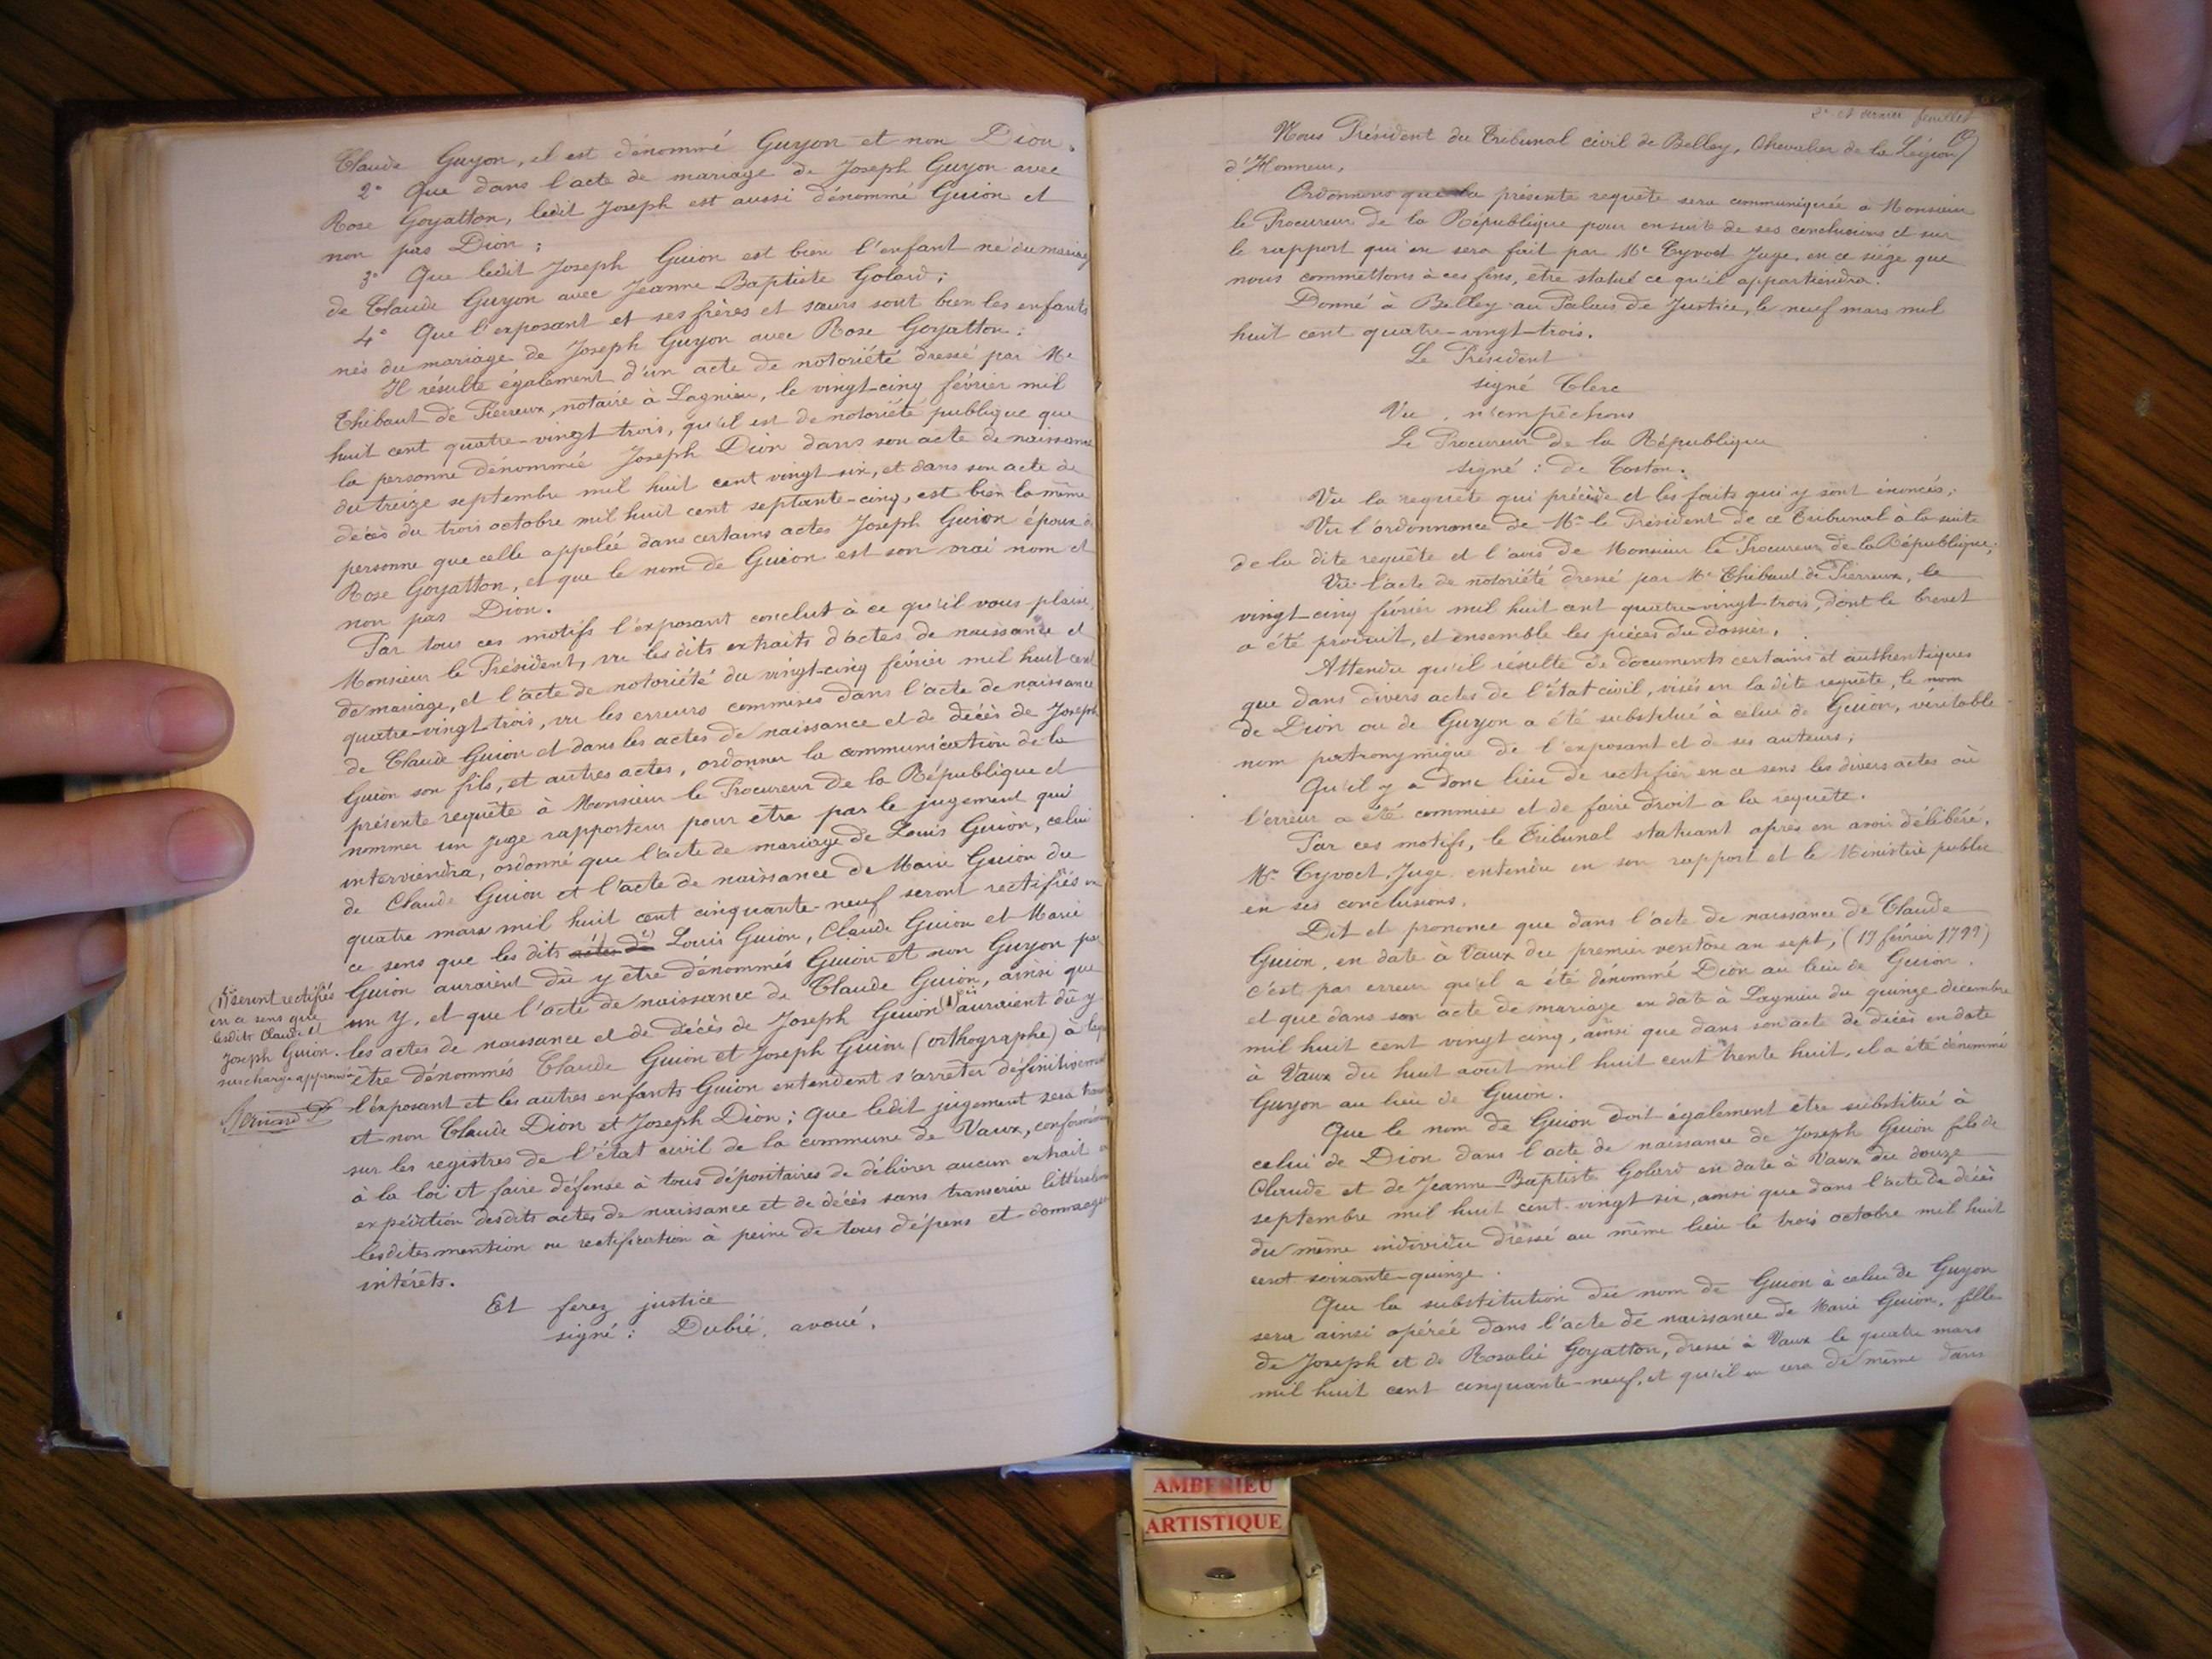 Claude Guyon, il est dénommé Guyon et non Dion.
2° Que dans l'acte de mariage de Joseph Guyon avec
Rose Goyatton, ledit Joseph est aussi dénommé Guion et
non pas Dion ;
3° Que ledit Joseph Guion est bien l'enfant né du mariage
de Claude Guyon avec Jeanne-Baptiste Golard ;
4° Que l'exposant et ses frères et sœurs sont bien les enfants
nés du mariage de Joseph Guyon avec Rose Goyatton ;
Il résulte également d'un acte de notoriété dressé par Me
Thibaut de Pierreux, notaire à Lagnieu, le vingt-cinq février mil
huit cent quatre-vingt-trois, qu'il est de notoriété publique que
la personne dénommée Joseph Dion dans son acte de naissance
du treize septembre mil huit cent vingt-six, et dans son acte de
décès du trois octobre mil huit cent septante-cinq, est bien la même
personne que celle appelée dans certains actes Joseph Guion époux de
Rose Goyatton, et que le nom de Guion est son vrai nom et
non pas Dion.
Par tous ces motifs l'exposant conclut à ce qu'il vous plaise,
Monsieur le Président, vu lesdits extraits d'actes de naissance et
de mariage, et l'acte de notoriété du vingt-cinq février mil huit cent
quatre-vingt-trois, vu les erreurs commises dans l'acte de naissance
de Claude Guion et dans les actes de naissance et de décès de Joseph
Guion son fils, et autres actes, ordonner la communication de la
présente requête à Monsieur le Procureur de la République et
nommer un juge rapporteur pour être par le jugement qui
interviendra, ordonné que l'acte de mariage de Louis Guion, celui
de Claude Guion et l'acte de naissance de Marie Guion du
quatre mars mil huit cent cinquante-neuf seront rectifiés en
ce sens que les dits actes de Louis Guion, Claude Guion et Marie
Guion auraient dû y être dénommés Guion et non Guyon par
un Y, et que l'acte de naissance de Claude Guion, ainsi que
les actes de naissance et de décès de Joseph Guion (1) auraient dû y
être dénommés Claude Guion et Joseph Guion (orthographe) à
l'exposant et les autres enfants Guion entendent s'arrêter définitivement
et non Claude Dion et Joseph Dion ; que ledit jugement sera
sur les registres de l'état civil de la commune de Vaux, conformément
à la loi et faire défense à tous dépositaires de délivrer aucun extrait
expédition desdits actes de naissance et de décès sans transcrire littéralement
lesdites mention ou rectification à peine de tous dépens et dommages
intérêts.
Et ferez justice
signé : Dubié, avoué.
(1) seront rectifiés
en ce sens que
lesdits Claude et
Joseph Guion.
surcharge approuvée
Bernard
2e et dernier feuillet
Nous Président du Tribunal civil de Belley, Chevalier de la Légion
d'Honneur,
Ordonnons que la présente requête sera communiquée à Monsieur
le Procureur de la République pour ensuite de ses conclusions et sur
le rapport qui en sera fait par Me Cyvoct Juge en ce siège que
nous commettons à ces fins, être statué ce qu'il appartiendra.
Donné à Belley au Palais de Justice, le neuf mars mil
huit cent quatre-vingt-trois.
Le Président
signé Clerc
Vu, n'empêchons
Le Procureur de la République
signé : de Caston.
Vu la requête qui précède et les faits qui y sont énoncés ;
Vu l'ordonnance de Mr le Président de ce Tribunal à la suite
de la dite requête et l'avis de Monsieur le Procureur de la République ;
Vu l'acte de notoriété dressé par Me Thibaut de Pierreux, le
vingt-cinq février mil huit cent quatre-vingt-trois, dont le brevet
a été produit, et ensemble les pièces du dossier.
Attendu qu'il résulte de documents certains et authentiques
que dans divers actes de l'état civil, visés en la dite requête, le nom
de Dion ou de Guyon a été substitué à celui de Guion, véritable
nom patronymique de l'exposant et de ses auteurs ;
Qu'il y a donc lieu de rectifier en ce sens les divers actes où
l'erreur a été commise et de faire droit à la requête.
Par ces motifs, le Tribunal statuant après en avoir délibéré,
Mr Cyvoct, Juge entendu en son rapport et le Ministère public
en ses conclusions.
Dit et prononce que dans l'acte de naissance de Claude
Guion, en date à Vaux du premier ventôse an sept, (19 février 1799)
c'est par erreur qu'il a été dénommé Dion au lieu de Guion.
et que dans son acte de mariage en date à Lagnieu du quinze décembre
mil huit cent vingt cinq, ainsi que dans son acte de décès en date
à Vaux du huit août mil huit cent trente huit, il a été dénommé
Guyon au lieu de Guion.
Que le nom de Guion doit également être substitué à
celui de Dion dans l'acte de naissance de Joseph Guion fils de
Claude et de Jeanne-Baptiste Golard en date à Vaux du douze
septembre mil huit cent-vingt six, ainsi que dans l'acte de décès
du même individu dressé au même lieu le trois octobre mil huit
cent soixante-quinze.
Que la substitution du nom de Guion à celui de Guyon
sera ainsi opérée dans l'acte de naissance de Marie Guion, fille
de Joseph et de Rosalie Goyatton, dressé à Vaux le quatre mars
mil huit cent cinquante-neuf, et qu'il en sera de même dans
AMBERIEU
ARTISTIQUE